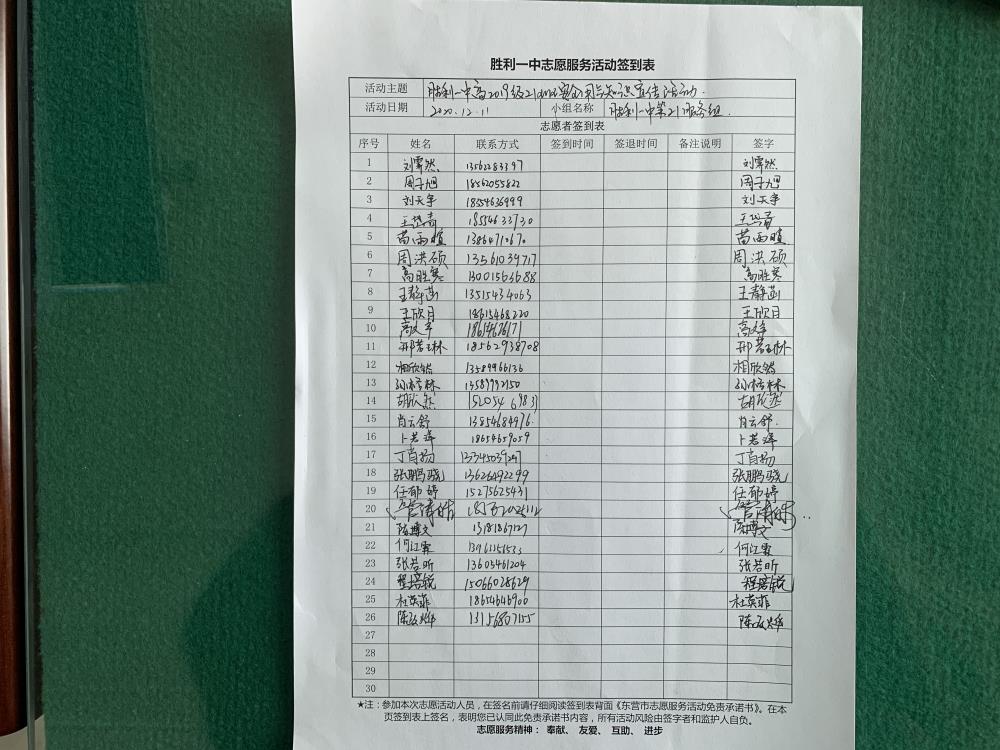 胜利一中志愿服务活动签到表
活动主题 胜利一中高2019级21 宣传活动
活动日期 2020.12.11 小组名称 胜利一中第21服务组
志愿者签到表
序号 姓名 联系方式 签到时间 签退时间 备注说明 签字
1 刘霏然 13562283397 刘霏然
2 周子旭 18562055822 周子旭
3 刘天宇 18554636999 刘天宇
4 18554633730
5 苗雨暄 13864710670 苗雨暄
6 周洪硕 13561039717 周洪硕
7 高胜寒 13001563688 高胜寒
8 王静菡 13515434063 王静菡
9 王欣月 18615468220 王欣月
10
11 邢若琳 18562938708 邢若琳
12 13589966136
13 13589992150
14 胡欣然 胡欣然
15 肖云舒 13854684976 肖云舒
16 卜若 18654659059 卜若
17 丁肖扬 丁肖扬
18 张鹏骁 13626492299 张鹏骁
19 任郁婷 15275625431 任郁婷
20
21 陈博文 陈博文
22 何江霖 何江霖
23 张若昕 13605461204 张若昕
24 程培锐 15066028629 程培锐
25 杜英菲 18654646900 杜英菲
26 13156807155
27
28
29
30
★注：参加本次志愿活动人员，在签名前请仔细阅读签到表背面《东营市志愿服务活动免责承诺书》。在本
页签到表上签名，表明您已认同此免责承诺书内容，所有活动风险由签字者和监护人自负。
志愿服务精神： 奉献、 友爱、 互助、 进步